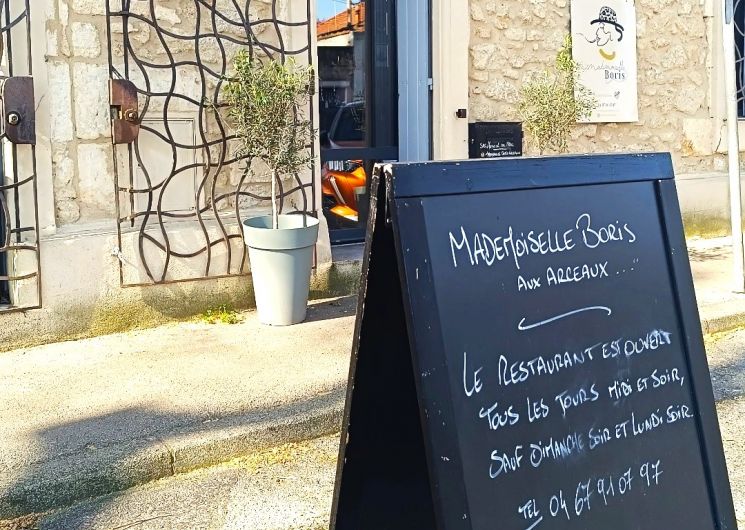 Mademoiselle
Boris
MADEMOISELLE BORIS
AUX ARCEAUX ..."
LE RESTAURANT EST OUVERT
TOUS LES JOURS MIDI ET SOIR,
SAUF DIMANCHE SOIR ET LUNDI SOIR.
TEL 04 67 91 07 97